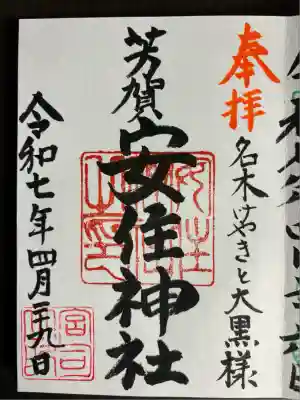 奉拝
名木けやきと大黒様
芳賀
安住神社
令和七年四月二十九日
宮司